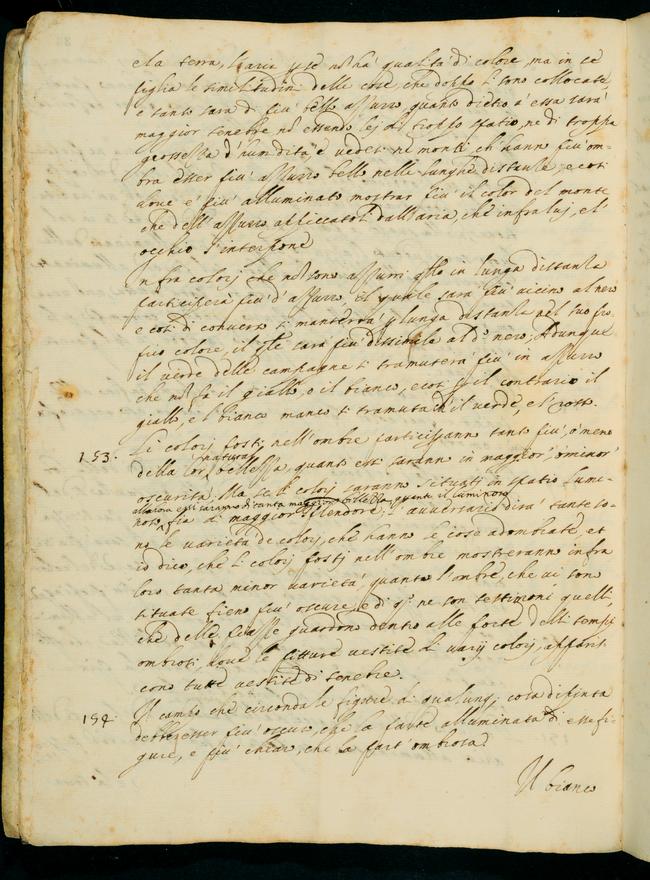 e la terra, l'aria p se nõ há qualità di colore, ma in se
piglia le similitudini delle cose, che doppo lj sono collocate,
e tanto sará di piu' bello assurro, quanto dietro á essa sará
maggior tenebre nõ essendo lej di troppo spatio, ne di troppa
grossessa d'humidità, e vedesi ne monti, ch'hanno piu' om-
bra esser piu' assurro bello nelle lunghe distanse, e cosi
dove e' piu' alluminato mostrar piu' il color del monte
che dell'assurro appiccatolj dall'aria, che infra luj, e l'
occhio s'interpone
Infra colorj che nõ sono assurri, qllo in lunga distansa
participerá piu' d'assurro, il quale sará piu' vicino al nero
e cosi di converso si manterrá p lunga distansa nel suo pro
prio colore, il qle sará piu' dissimile al dº nero, Adunque
il verde delle campagne si tramuterá piu' in assurro
che nõ fá il giallo, o il bianco, e cosi p il contrario il
giallo, e l'bianco manco si tramuta ch'il verde, e l'rosso.
153. Li colorj posti nell'ombre participanno tanto piu', o' meno
della lor naturaľ bellessa, quanto essi saranno in maggior', o minor'
oscurità. Ma se lj colorj saranno situati in spatio lumi-
allhora essi saranno di tanta maggior bellessa, quanto il luminoso
noso, fia di maggior splendore; l'avversario dirá tante so-
no le varietà de colorj, che hanno le cose adombrate, et
io dico, che lj colorj posti nell'ombre mostreranno infra
loro tanta minor varietà, quanto l'ombre, che vi son
situate fieno piu' oscure, e di qº ne son testimoni quelli,
che delle piasse guardono dentro alle porte delli tempij
ombrosi, dove le pitture vestite di varij colorj, apparis
cono tutte vestite di tenebre.
154. Il campo che circonda le figure di qualunq; cosa dipinta
deve esser piu' oscuro, che la parte alluminata di esse fi-
gure, e piu' chiaro, che la part' ombrosa.
Il bianco